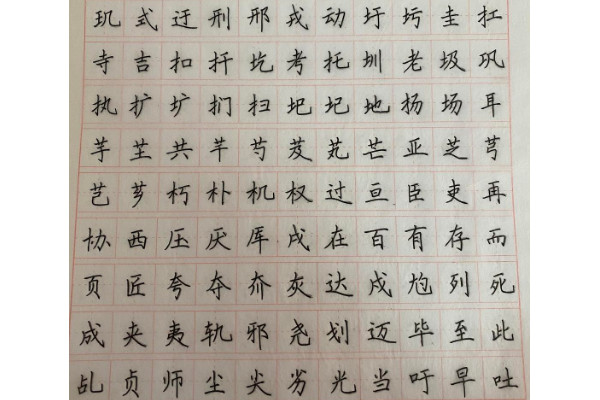 玑式迂刑邢戎动圩圬圭扛
寺吉扣扦圪考托圳老圾巩
执扩圹扪扫圯圮地扬场耳
芋芏共芊芍芨芄芒亚芝芎
芑芗朽朴机权过亘臣吏再
协西压厌厍戌在百有存而
页匠夸夺夼灰达戍尥列死
成夹夷轨邪尧划迈毕至此
乩贞师尘尖劣光当吁早吐